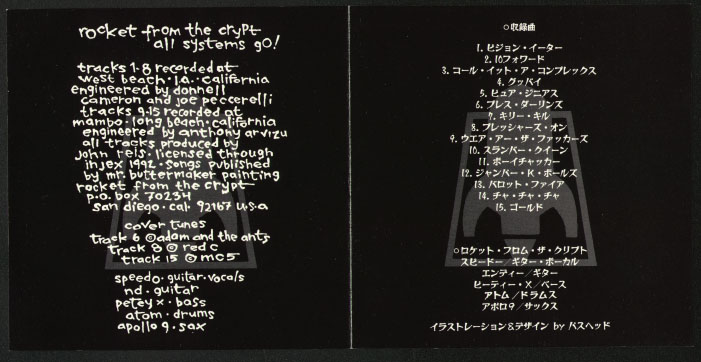 rocket from the crypt
all systems go!
tracks 1-8 recorded at
west beach・l.a.・california
engineered by donnell
cameron and joe peccerelli
tracks 9-15 recorded at
mambo・long beach・california
engineered by anthony arvizu
all tracks produced by
john reis・licensed through
injex 1992・songs published
by mr. buttermaker painting
rocket from the crypt
p.o. box 70234
san diego・cal. 92167 u.s.a
cover tunes
track 6 ©adam and the ants
track 8 © red c
track 15 © mc5
speedo・guitar・vocals
nd・guitar
petey x・bass
atom・drums
apollo 9・sax
○収録曲
1. ビジョン・イーター
2. 10フォワード
3. コール・イット・ア・コンプレックス
4. グッバイ
5. ピュア・ジニアス
6. プレス・ダーリンズ
7. キリー・キル
8. プレッシャーズ・オン
9. ウエア・アー・ザ・ファッカーズ
10. スランバー・クイーン
11. ボーイチャッカー
12. ジャンパー・K・ボールズ
13. バロット・ファイア
14. チャ・チャ・チャ
15. ゴールド
○ロケット・フロム・ザ・クリプト
スピードー/ギター・ボーカル
エンディー/ギター
ピーティー・X/ベース
アトム/ドラムス
アポロ9/サックス
イラストレーション&デザイン by パスヘッド